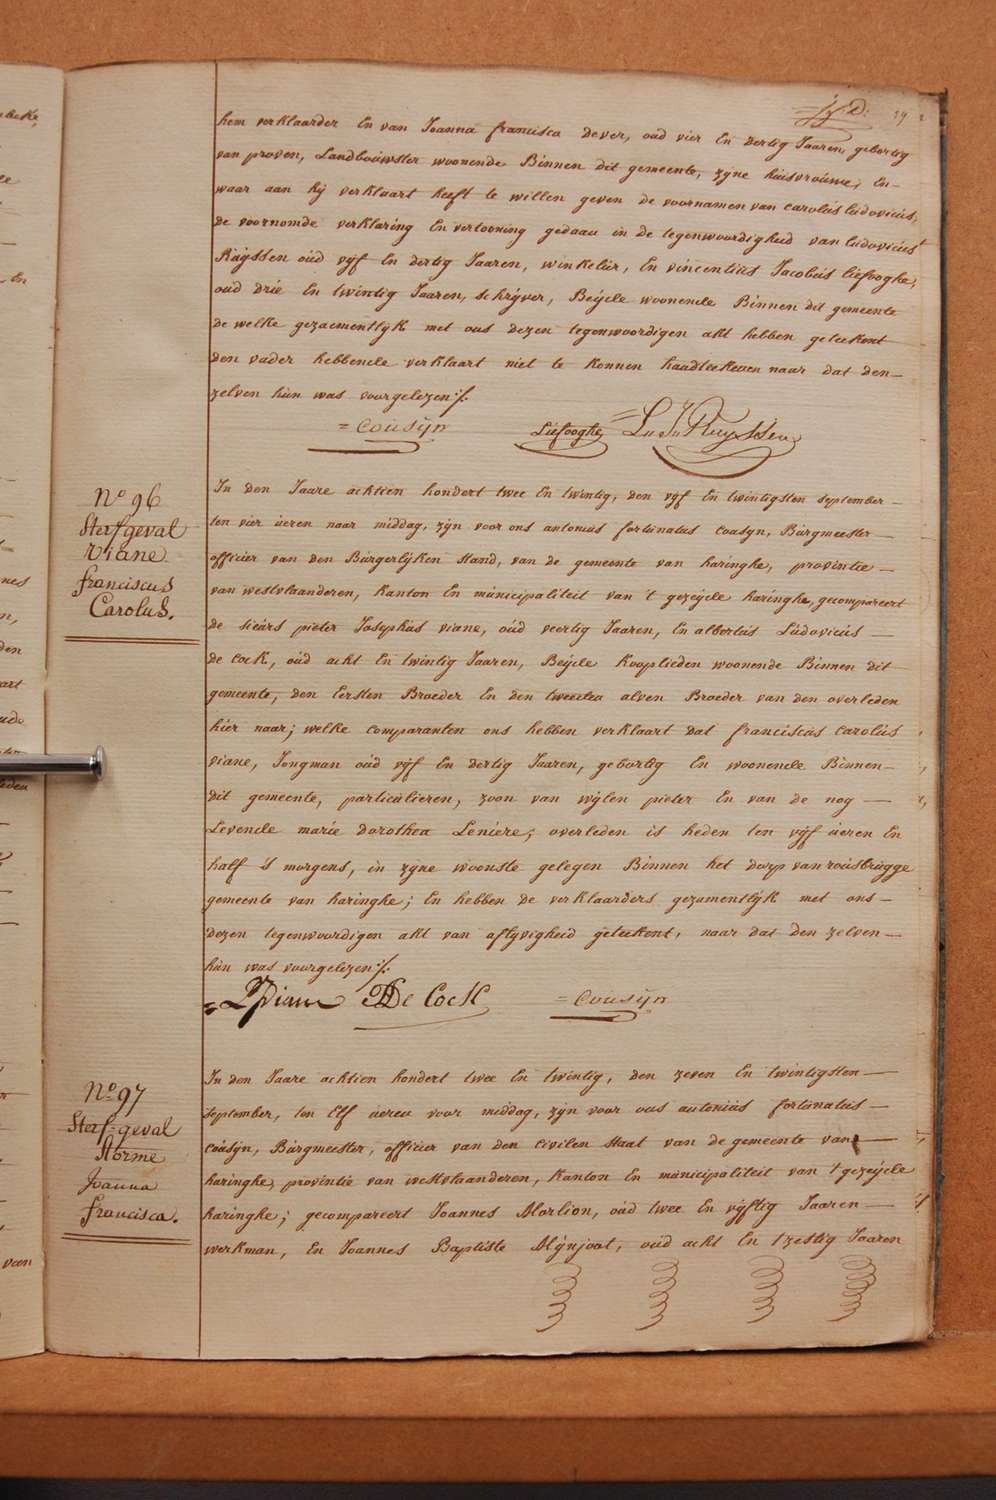 hem verklaarder En van Joanna francisca dever, oud vier En dertig Jaaren, gebortig
van proven, Landbouwster woonende Binnen dit gemeente, zyne huisvrouwe; En-
waar aan hy verklaart heeft te willen geven de voornamen van carolus ludovicus,
de voornomde verklaring En vertooning gedaen in de tegenwoordigheid van ludovicus
Ruyssen oud vyf En dertig Jaaren, winkelier, En vincentius Jacobus liefooghe,
oud drie En twintig Jaaren, schryver, Beyde woonende Binnen dit gemeente
de welke gezaementlyk met ons dezen tegenwoordigen akt hebben geteekent
den vader hebbende verklaart niet te konnen handteekenen naar dat den-
zelven hun was voorgelezen ./.
= cousyn Liefooghe = Ruyssen
N° 96
Sterfgeval
Viane
franciscus
Carolus.
In den Jaare achtien hondert twee En twintig, den vyf En twintigsten september
ten vier ueren naar middag, zyn voor ons antonius fortunatus cousyn, Burgmeester
officier van den Burgerlyken stand, van de gemeente van haringhe, provintie
van westvlaanderen, kanton En municipaliteit van 't gezeyde haringhe, gecompareert
de sieurs pieter Josephus viane, oud veertig Jaaren, En albertus Ludovicus
de cock, oud acht En twintig Jaaren, Beyde kooplieden woonende Binnen dit
gemeente, den Eersten Broeder En den tweeden alven Broeder van den overleden
hier naar; welke comparanten ons hebben verklaart dat franciscus carolus
viane, Jongman oud vyf En dertig Jaaren, gebortig En woonende Binnen-
dit gemeente, particulieren, zoon van wylen pieter En van de nog
Levende marie dorothea Leniere; overleden is heden ten vyf ueren En
half 's morgens, in zyne woonste gelegen Binnen het dorp van rousbrugge
gemeente van haringhe; En hebben de verklaarders gezamentlyk met ons-
dezen tegenwoordigen akt van aflyvigheid geteekent, naar dat den zelven-
hun was voorgelezen ./.
Viane De Cock = cousyn
N° 97
Sterf-geval
Storme
Joanna
francisca.
In den Jaare achtien hondert twee En twintig, den zeven En twintigsten
september, ten Elf ueren voor middag, zyn voor ons antonius fortunatus
cousyn, Burgmeester, officier van den civilen staat van de gemeente van
haringhe, provintie van westvlaanderen, kanton En municipaliteit van 't gezeyde
haringhe; gecompareert Joannes Morlion, oud twee En vyftig Jaaren
werkman, En Joannes Baptiste Mynjoot, oud acht En tzestig Jaaren